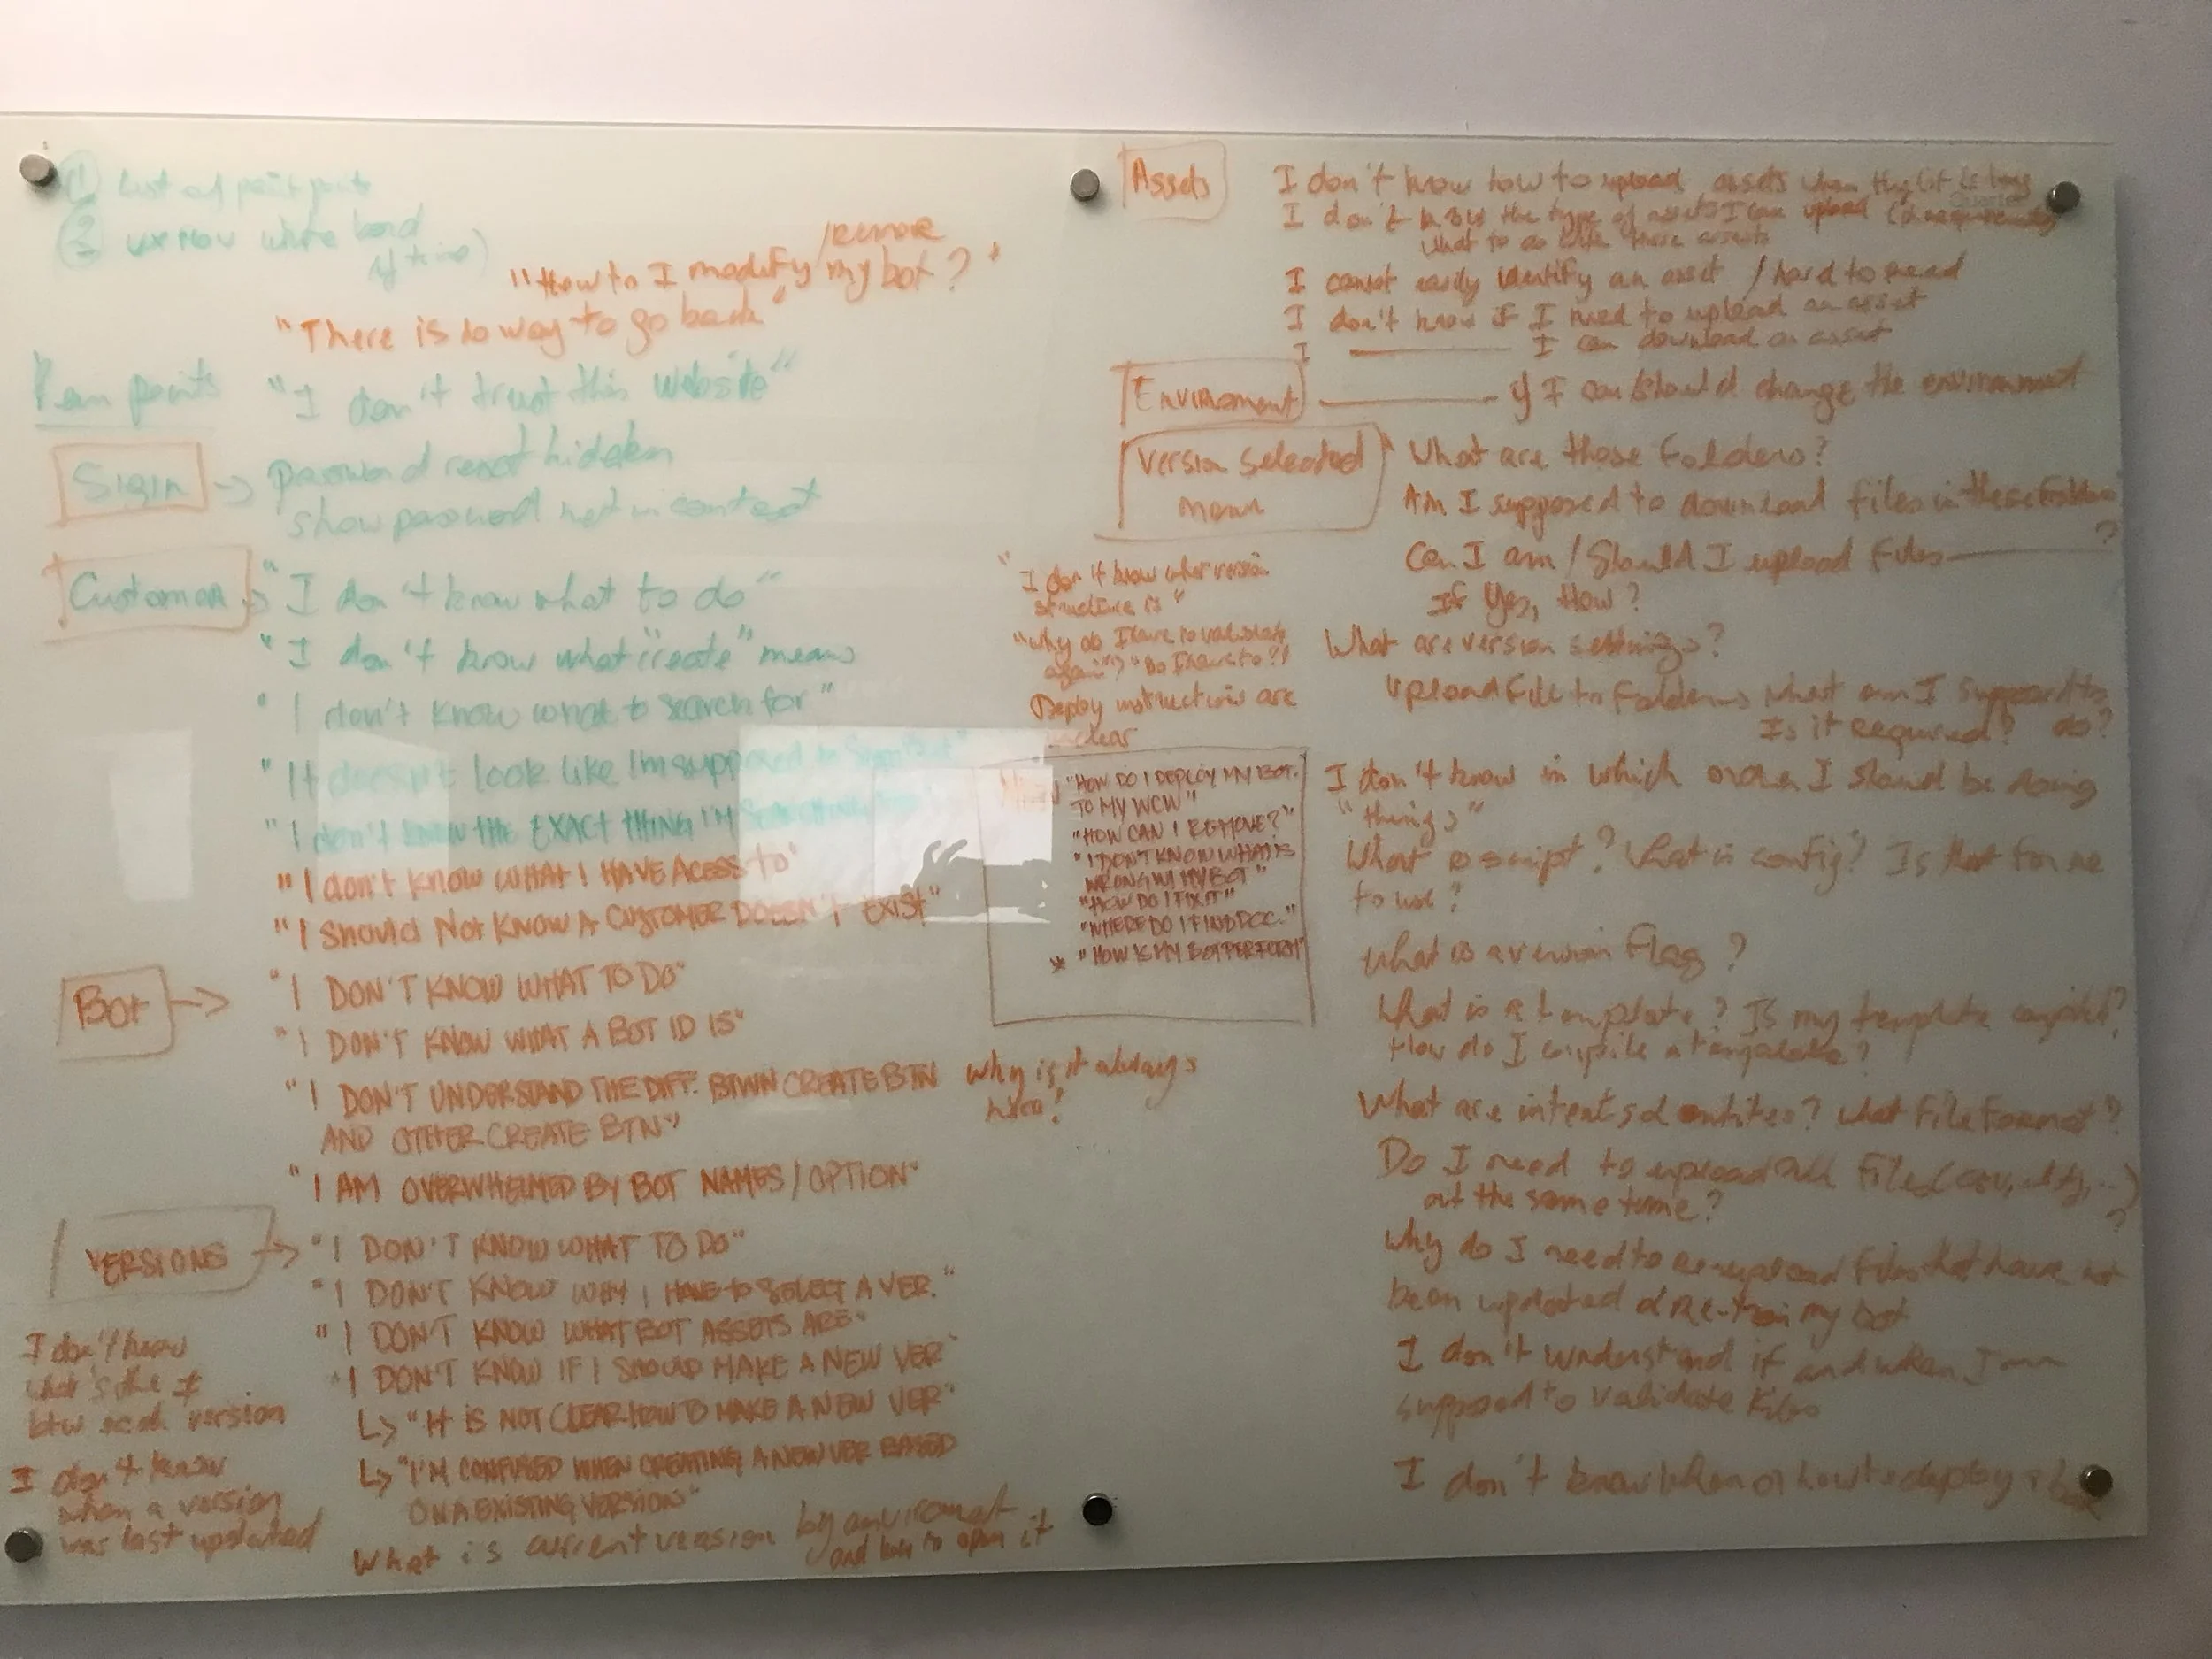 ① List of pain points
② UX NOU white board
if time)
/remove
"How to I modify my bot?"
"There is no way to go back"
Pain points
"I don't trust this website"
Sigin → password reset hidden
show password not in context
Customer → "I don't know what to do"
"I don't know what "create" means
"I don't know what to search for"
"It doesn't look like I'm supposed to
"I don't KNOW THE EXACT THING I'M SEARCHING
"I don't KNOW WHAT I HAVE ACESS to"
"I Should Not KNOW A CUSTOMER DOESN'T EXIST"
Bot → "I DON'T KNOW WHAT TO DO"
"I DON'T KNOW WHAT A BOT ID IS"
"I DON'T UNDERSTAND THE DIFF. BTWN CREATE BTN
AND OTHER CREATE BTN"
why is it always
here?
"I AM OVERWHELMED BY BOT NAMES / OPTION"
VERSIONS → "I DON'T KNOW WHAT TO DO"
"I DON'T KNOW WHY I HAVE to SELECT A VER."
"I DON'T KNOW WHAT BOT ASSETS ARE"
"I DON'T KNOW IF I SHOULD MAKE A NEW VER"
↳ "It IS NOT CLEAR HOW TO MAKE A NEW VER"
↳ "I'M CONFUSED WHEN CREATING A NEW VER BASED
ON A EXISTING VERSION"
What is current version by enviroment
and how to open it
I don't know
what's the ≠
btw each version
I don't know
when a version
was last updated
"I don't know what version
structure is"
"Why do I have to validate
again"? "Do I have to?!
Deploy instructions are
unclear
"HOW DO I DEPLOY MY BOT.
TO MY WCW"
"HOW CAN I REMOVE?"
"I DON'T KNOW WHAT IS
WRONG W/ MY BOT"
"HOW DO I FIX IT"
"WHERE DO I FIND DOC."
* "HOW IS MY BOT PERFORM"
Assets
I don't know how to upload assets when the list is long
I don't know the type of assets I can upload (& requirements)
what to do with those assets
I cannot easily identify an asset / hard to read
I don't know if I need to upload an asset
I ——— I can download an asset
Enviroment ——— if I can/should change the environment
Version selected
menu
What are those folders?
Am I supposed to download files in these folders
?
Can I am / Should I upload files ———
If Yes, How?
What are version settings?
Upload file to folders what am I supposed to
Is it Required? do?
I don't know in which order I should be doing
"things"
What is script? What is config? Is that for me
to use?
What is a version Flag?
What is a template? Is my template compiled?
How do I compile a template?
What are intents & entities? What File Format?
Do I need to upload all Files (csv, ...)
at the same time?
?
Why do I need to re-upload files that have not
been updated & Re-train my bot
I don't understand if and when I am
supposed to validate files
I don't know when or how to deploy a bot